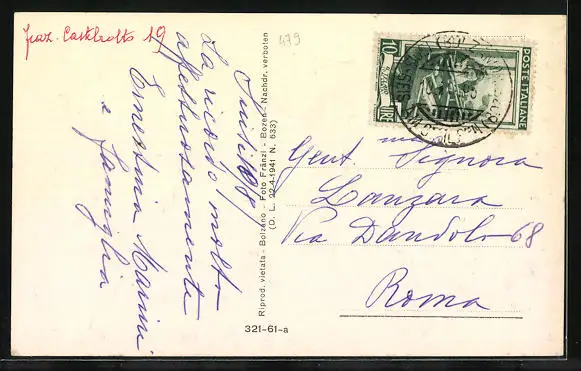 fraz. Castelrotto 19
479
Siusi 1/8/
La ricordo molto
affettuosamente
Ernestina Marini
e famiglia
Riprod. vietata - Bolzano - Foto Fränzl - Bozen - Nachdr. verboten
(D. L. 22-4-1941 N. 633)
321-61-a
POSTE ITALIANE
LIRE 10
Gent.ma Signora
Lanzara
Via Dandolo 68
Roma